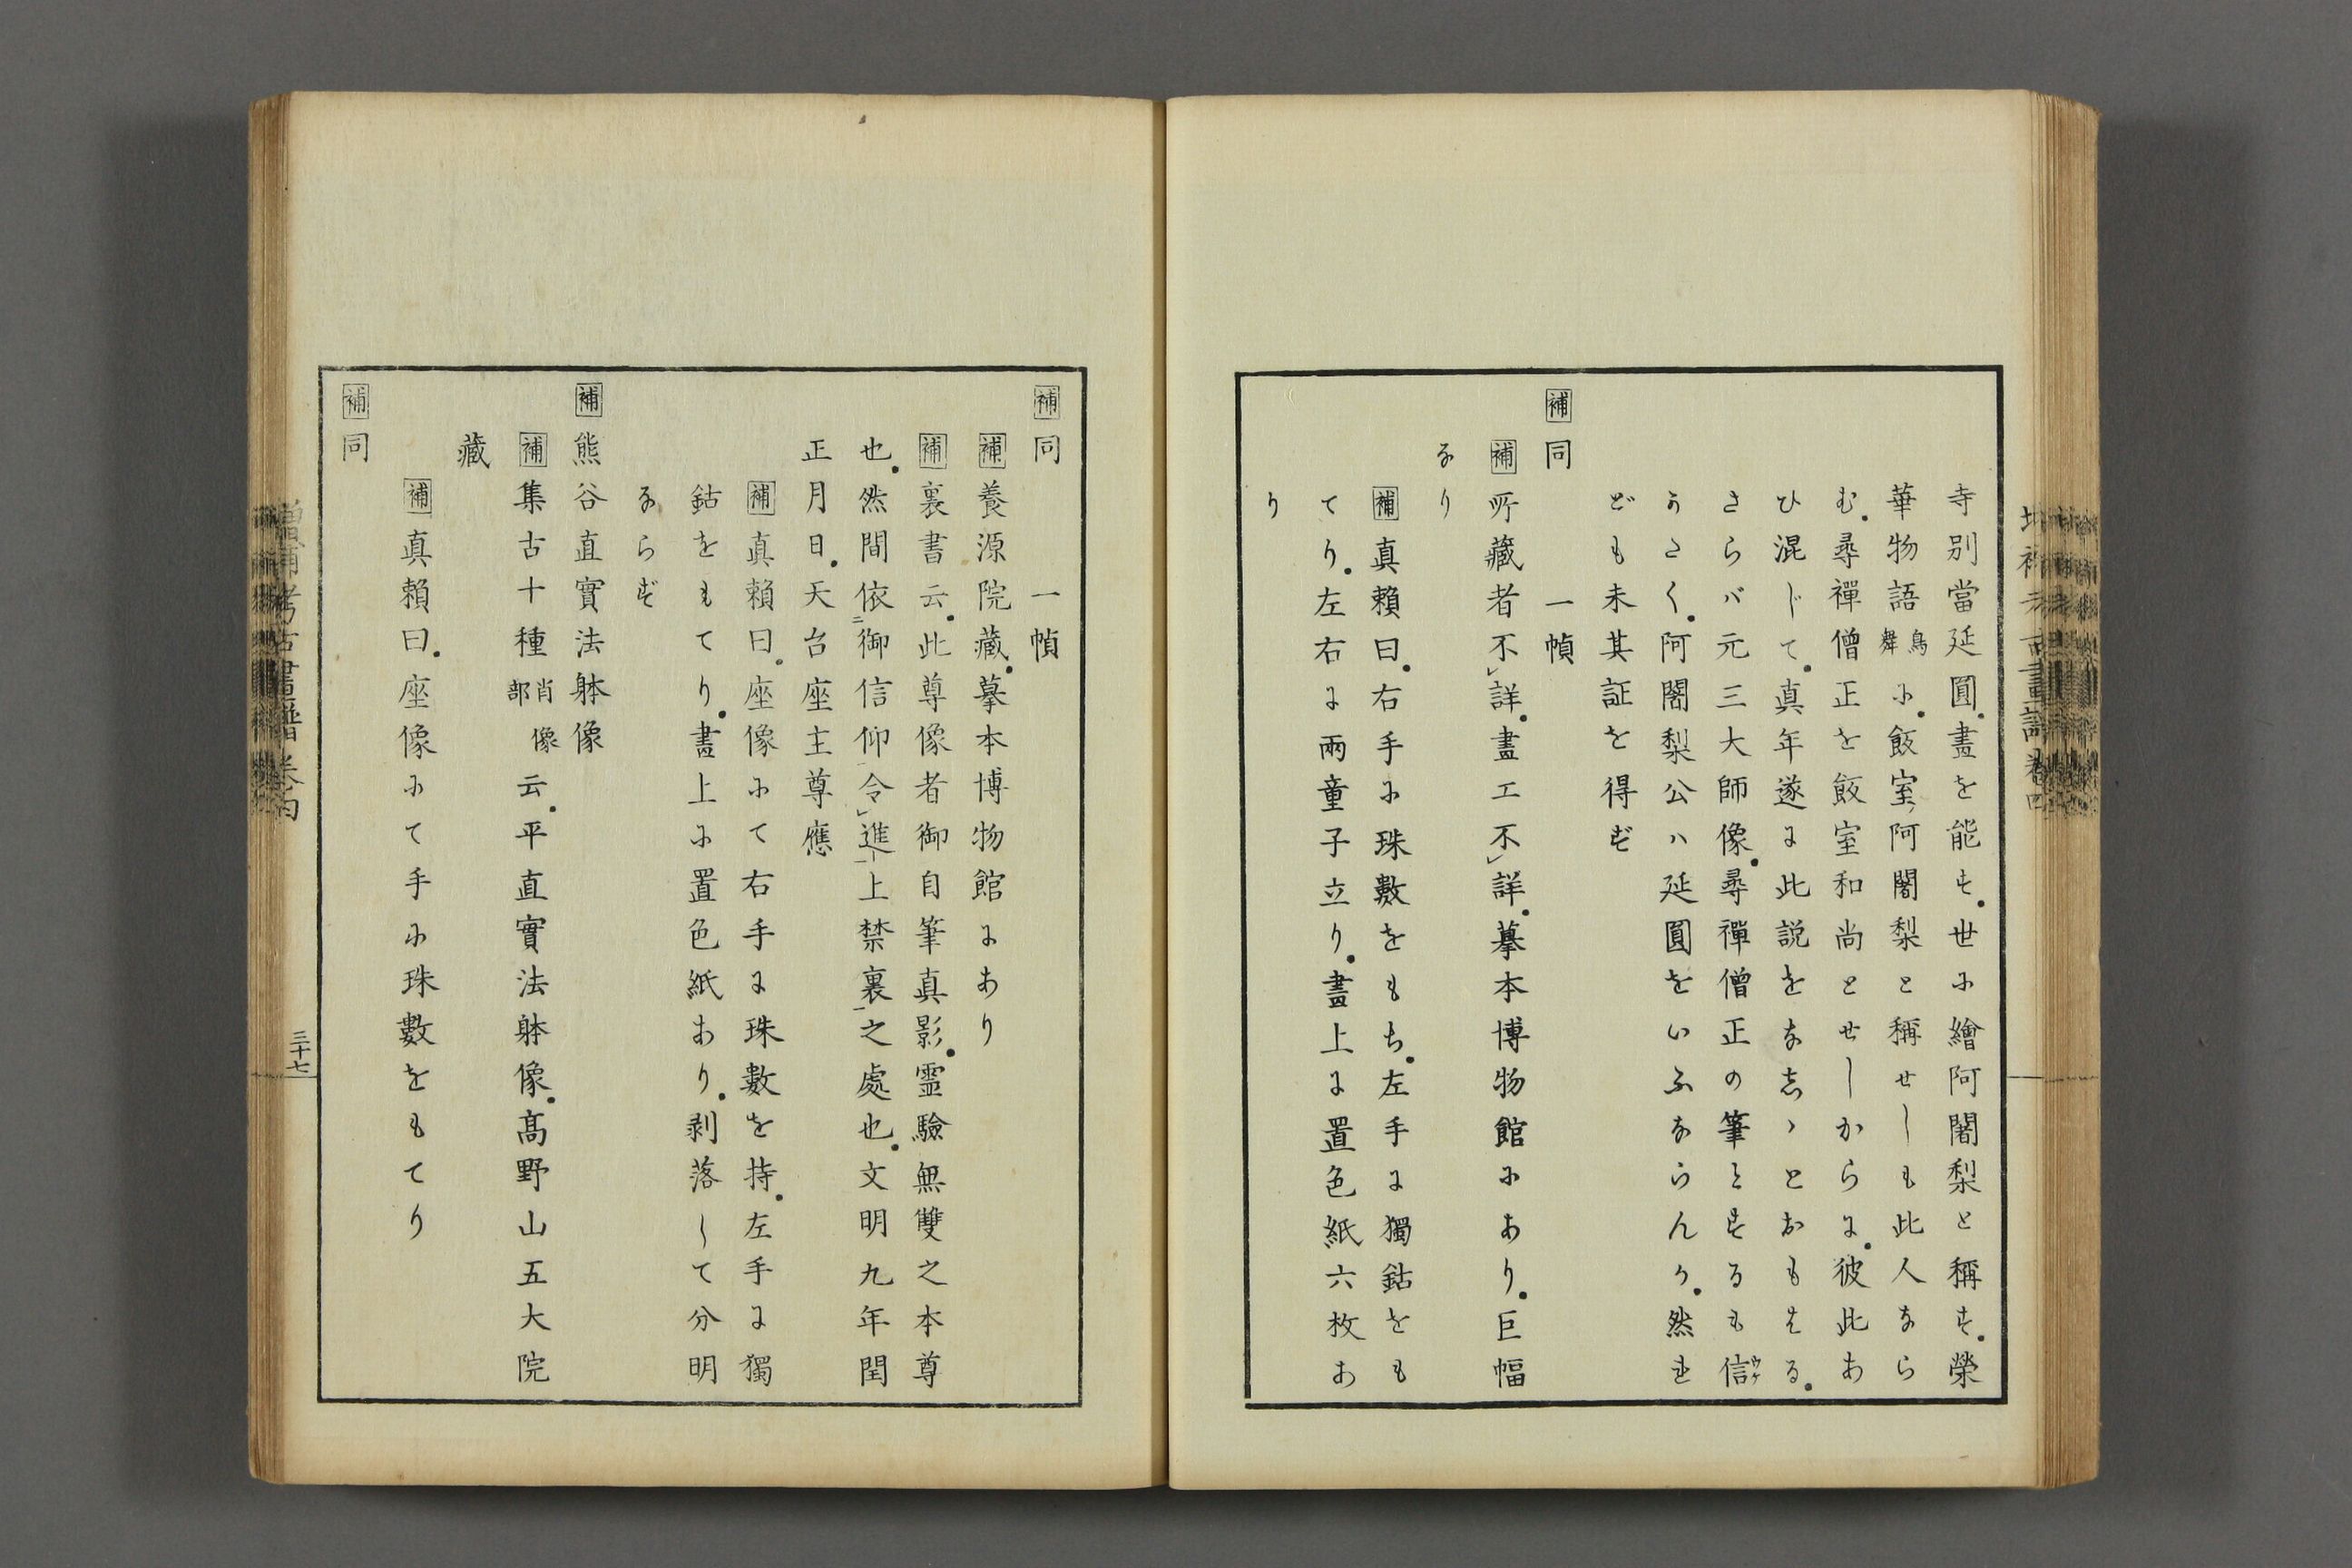 寺別當延圓。畫を能す。世に繪阿闍梨と稱す。榮
華物語鳥舞に。飯室ノ阿闍梨と稱せしも此人なら
む。尋禪僧正を飯室和尚とせしからに。彼此あ
ひ混じて。真年遂に此説をなしゝとおもはる。
さらバ元三大師像。尋禪僧正の筆とするも信ウケ
うたく。阿闍梨公ハ延圓をいふならんか。然れ
ども未其証を得ず
補同　一幀
補所藏者不詳。畫工不詳。摹本博物館にあり。巨幅
なり
補真頼曰。右手に珠數をもち。左手に獨鈷をも
てり。左右に兩童子立り。畫上に置色紙六枚あ
り
補同　一幀
補養源院藏。摹本博物館にあり
補裏書云。此尊像者御自筆真影。靈驗無雙之本尊
也。然間依ニ御信仰一令レ進ニ上禁裏一之處也。文明九年閏
正月日。天台座主尊應
補真頼曰。座像にて右手に珠數を持。左手に獨
鈷をもてり。畫上に置色紙あり。剥落して分明
ならず
補熊谷直實法躰像
補集古十種肖像部云。平直實法躰像。高野山五大院
藏
補真頼曰。座像にて手に珠數をもてり
補同
增補考古畫譜卷四
三十七